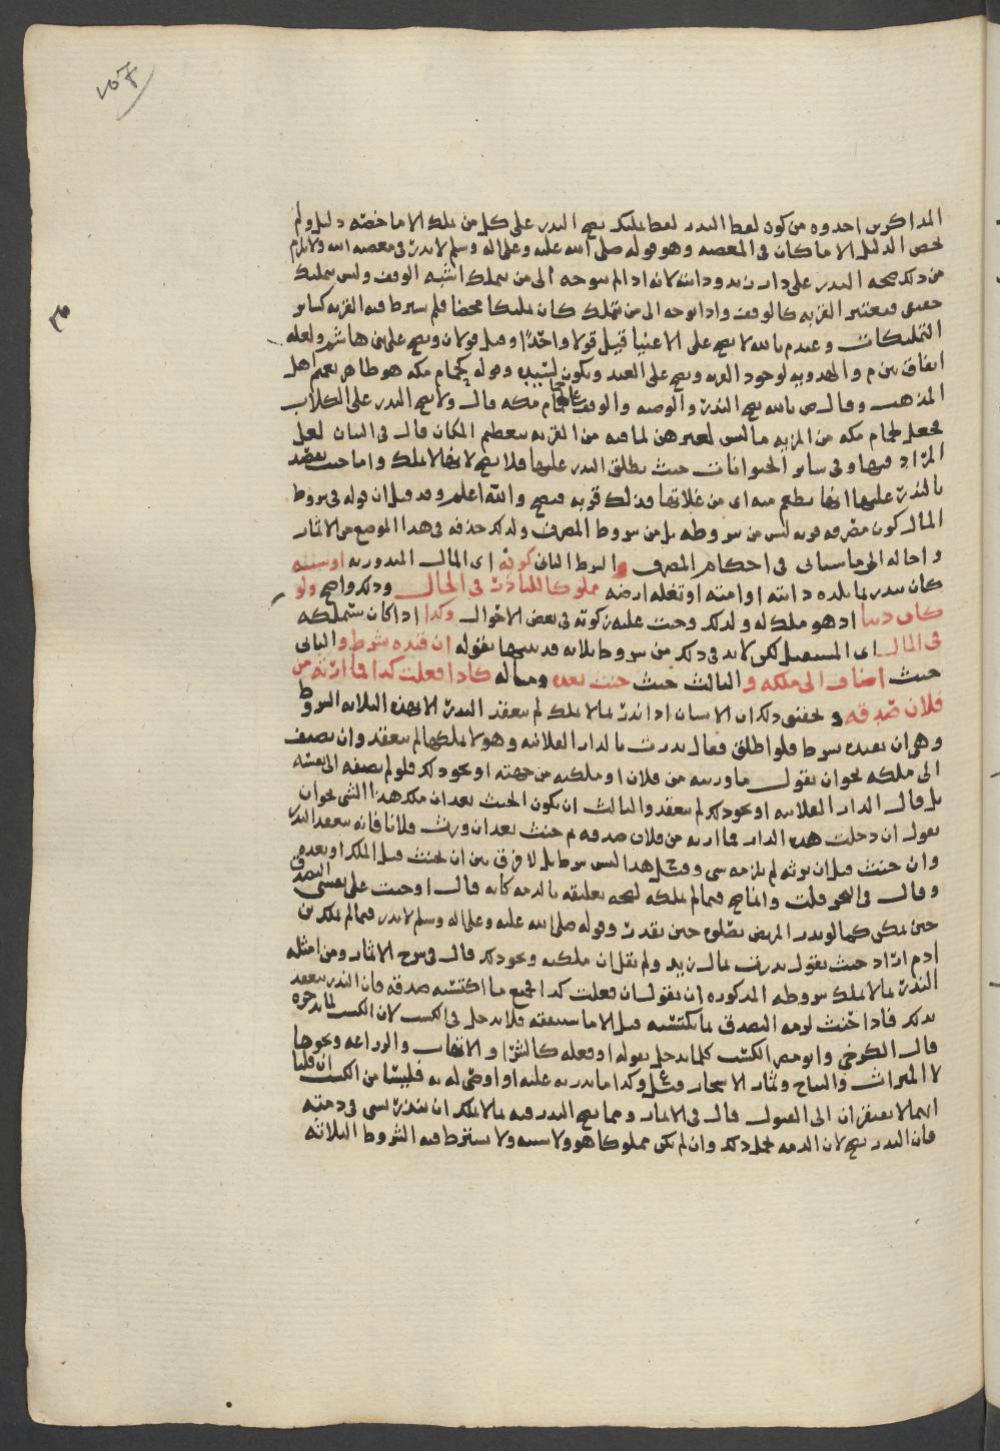 المذاكرين احدوه من كون لفظ النذر لفظ تمليك يصح النذر على كل من يملك الا ما خصه دليل ولم
يخص الدليل الا ما كان في المعصيه وهو قوله صلى الله عليه وعلى اله وسلم لا نذر في معصيه الله ولا يلزم
من ذلك صحه النذر على دار زيد ودابته لانه اذا لم يتوجه الى من يتملك اشبه الوقف وليس بتمليك
حقيقي فيعتبر القربه كالوقف واذا توجه الى من يتملك كان تمليكا محضا فلم يشترط فيه القربه كسائر
التمليكات وعند م بالله لا يصح على الاغنيا قيل قولا واحدًا وقيل قولان ويصح على بني هاشم ولعله
اتفاق بين م والهدويه لوجود القربه ويصح على العبد ويكون لسيده وقوله كحمام مكه هو ظاهر تعميم اهل
المذهب وقال ص بالله يصح النذر والوصيه والوقف على حمام مكه قال ولا يصح النذر على الكلاب
فجعل لحمام مكه من المزيه ما ليس لغيرهن لما فيه من القربه بتعظيم المكان قال في البيان لعل
المراد فيها وفي سائر الحيوانات حيث يطلق النذر عليها فلا يصح لانها لا تملك واما حيث يقصد
بالنذر عليها انها تطعم منه اي من غلاتها فذلك قربه فيصح والله اعلم وقد قيل ان قوله في شروط
المال كون مصرفه قربه ليس من شروطه بل من شروط المصرف ولذلك حذفه في هذا الموضع من الاثمار
واحاله الى ما سياتي في احكام المصرف والشرط الثاني كونه اي المال المنذور به او سببه
كان ينذر بما تلده دابته او امته او تغله ارضه مملوكا للناذر في الحال وذلك واضح ولو
كان دينا اذ هو ملك له ولذلك وجبت عليه زكوته في بعض الاحوال وكذا اذا كان سيملكه
في المال اي المستقبل لكن لابد في ذلك من شروط ثلاثه قد بينها بقوله ان قيده بشرط والثاني
حيث اضاف الى ملكه والثالث حيث حنث بعده ومثاله كاذا فعلت كذا فما ارثه من
فلان صدقه وتحقيق ذلك ان الانسان اذا نذر بما لا يملك لم ينعقد النذر الا بهذه الثلاثه الشروط
وهي ان يقيده بشرط فلو اطلق فقال نذرت بالدار الفلانيه وهو لا يملكها لم ينعقد وان يضيف
الى ملكه نحو ان يقول ما ورثته من فلان او ملكته من جهته او نحو ذلك فلو لم يضفه الى نفسه
بل قال الدار الفلانيه او نحو ذلك لم ينعقد والثالث ان يكون الحنث بعد ان ملك هذا الشي نحو ان
يقول ان دخلت هذه الدار فما ارثه من فلان صدقه ثم حنث بعد ان ورث فلانا فانه ينعقد النذر
وان حنث قبل ان يرثه لم يلزمه شي وقيل هذا ليس بشرط بل لا فرق بين ان يحنث قبل الملك او بعده
وقال في البحر قلت والناجح فيما لم يملكه لصحه تعليقه بالذمه كانه قال اوجبت على نفسي التصدق
حين يمكن كما لو نذر المريض بصلوه حين يقدر وقوله صلى الله عليه وعلى اله وسلم لا نذر فيما لم يملك بن
ادم اراد حيث يقول نذرت بمال زيد ولم يقل ان ملكته ونحو ذلك قال في شرح الاثمار ومن امثله
النذر بما لا يملك بشروطه المذكوره ان يقول ان فعلت كذا فجميع ما اكتسبه صدقه فان النذر ينعقد
بذلك فاذا حنث لزمه التصدق بما يكتسبه قبل الا ما سبقته فلا يدخل في الكسب لان الكسب لما يدخره
قال الكرخي وابو مضر الكسب كلما يدخل بقوله او فعله كالشرا والاتهاب والزراعه ونحوها
لا الميراث والمباح وثمار الاشجار قيل وكذا ما نذر به عليه او اوصي له به فليسا من الكسب ان قلنا
انهما لا يفتقران الى القبول قال في الاثمار ومما يصح النذر فيه بما لا يملك ان ينذر بشي في ذمته
فان النذر يصح لان الذمه تحمل ذلك وان لم يكن مملوكا هو ولا سببه ولا يشترط فيه الشروط الثلاثه